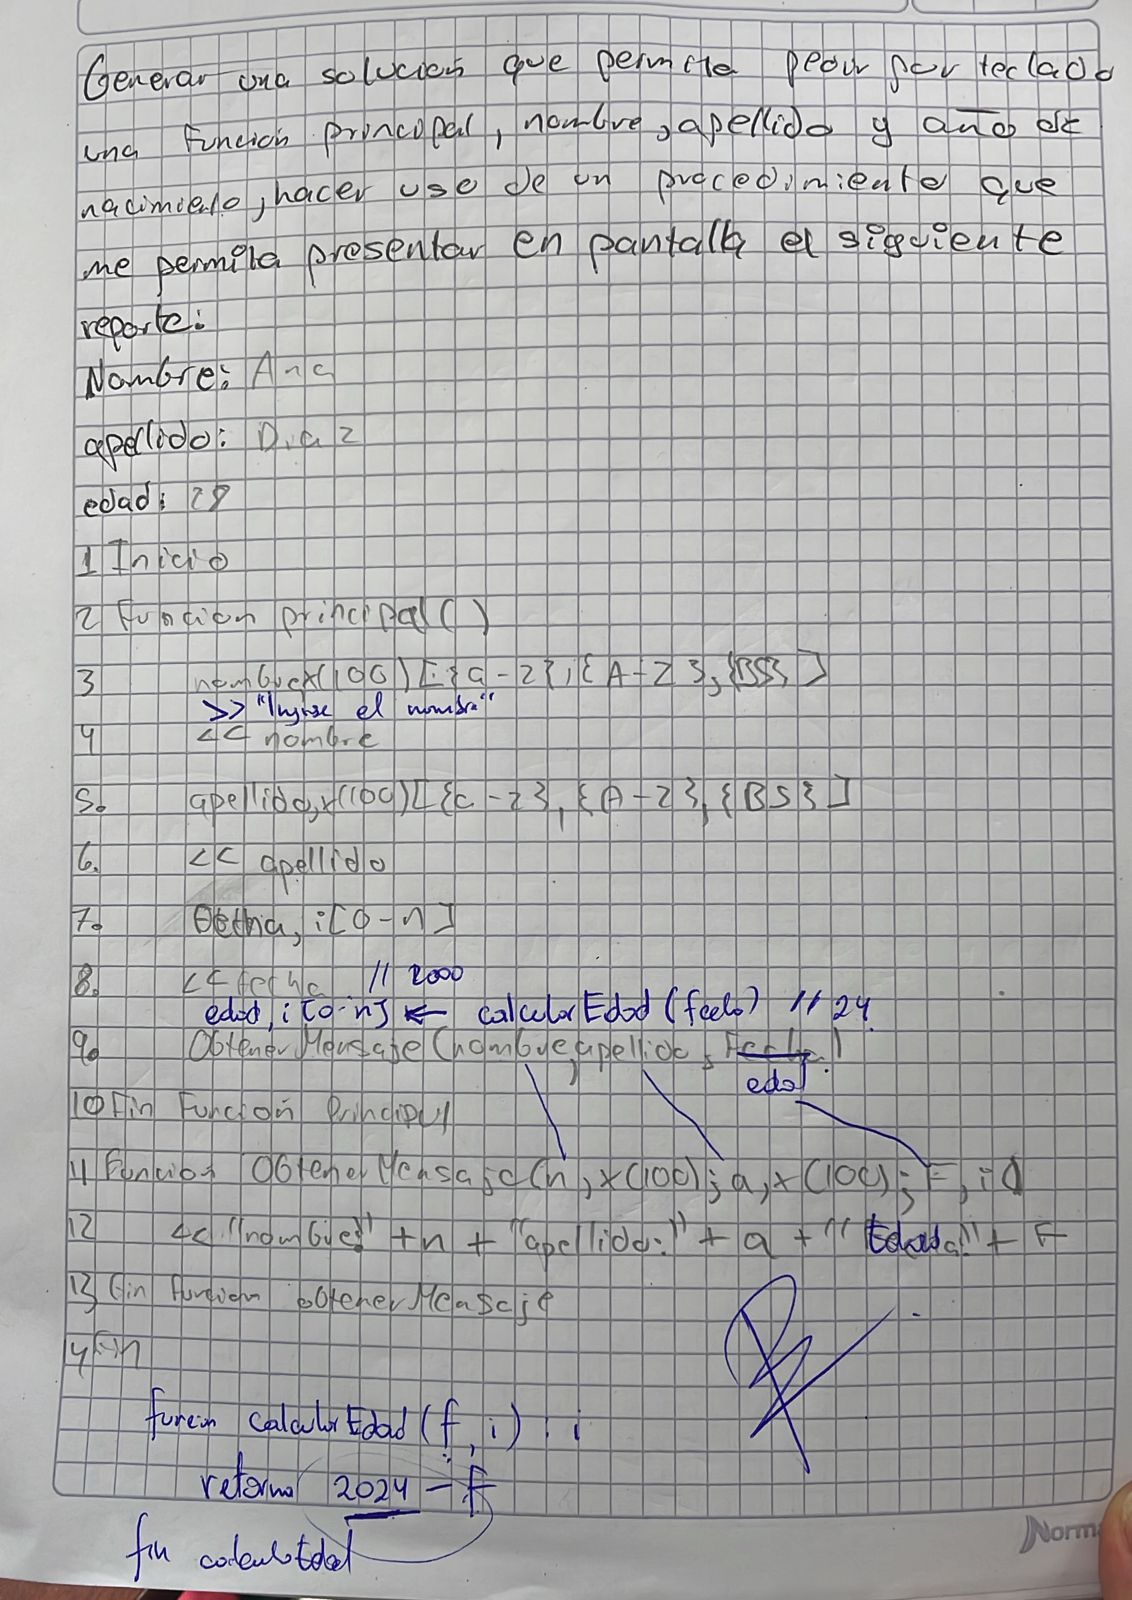 Generar una solución que permita pedir por teclado
una función principal, nombre, apellido y año de
nacimiento, hacer uso de un procedimiento que
me permita presentar en pantalla el siguiente
reporte:
Nombre: Ana
apellido: Diaz
edad: 28
1 Inicio
2 Función principal()
3 nombre,x(100)[{a-z},{A-Z},{BS}]
>> "Ingrese el nombre"
4 << nombre
5. apellido,x(100)[{a-z},{A-Z},{BS}]
6. << apellido
7. fecha, i[0-n]
8. << fecha // 2000
edad, i[0-n] ← calcularEdad(fecha) // 24
9. ObtenerMensaje(nombre,apellido, Fecha)
edad
10 Fin Función Principal
11 Función ObtenerMensaje(n,x(100);a,x(100);F,i)
12 << "nombre:" + n + "apellido:" + a + " Edad:" + F
13 Fin función obtenerMensaje
14 Fin
funcion calcularEdad(f, i) : i
retorna 2024 - F
fin calcularEdad
Norma